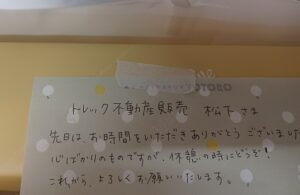 トレック不動産販売 松下さま
先日は、お時間をいただきありがとうございました
心ばかりのものですが、休憩の時にどうぞ!
これから、よろしくお願いいたします。